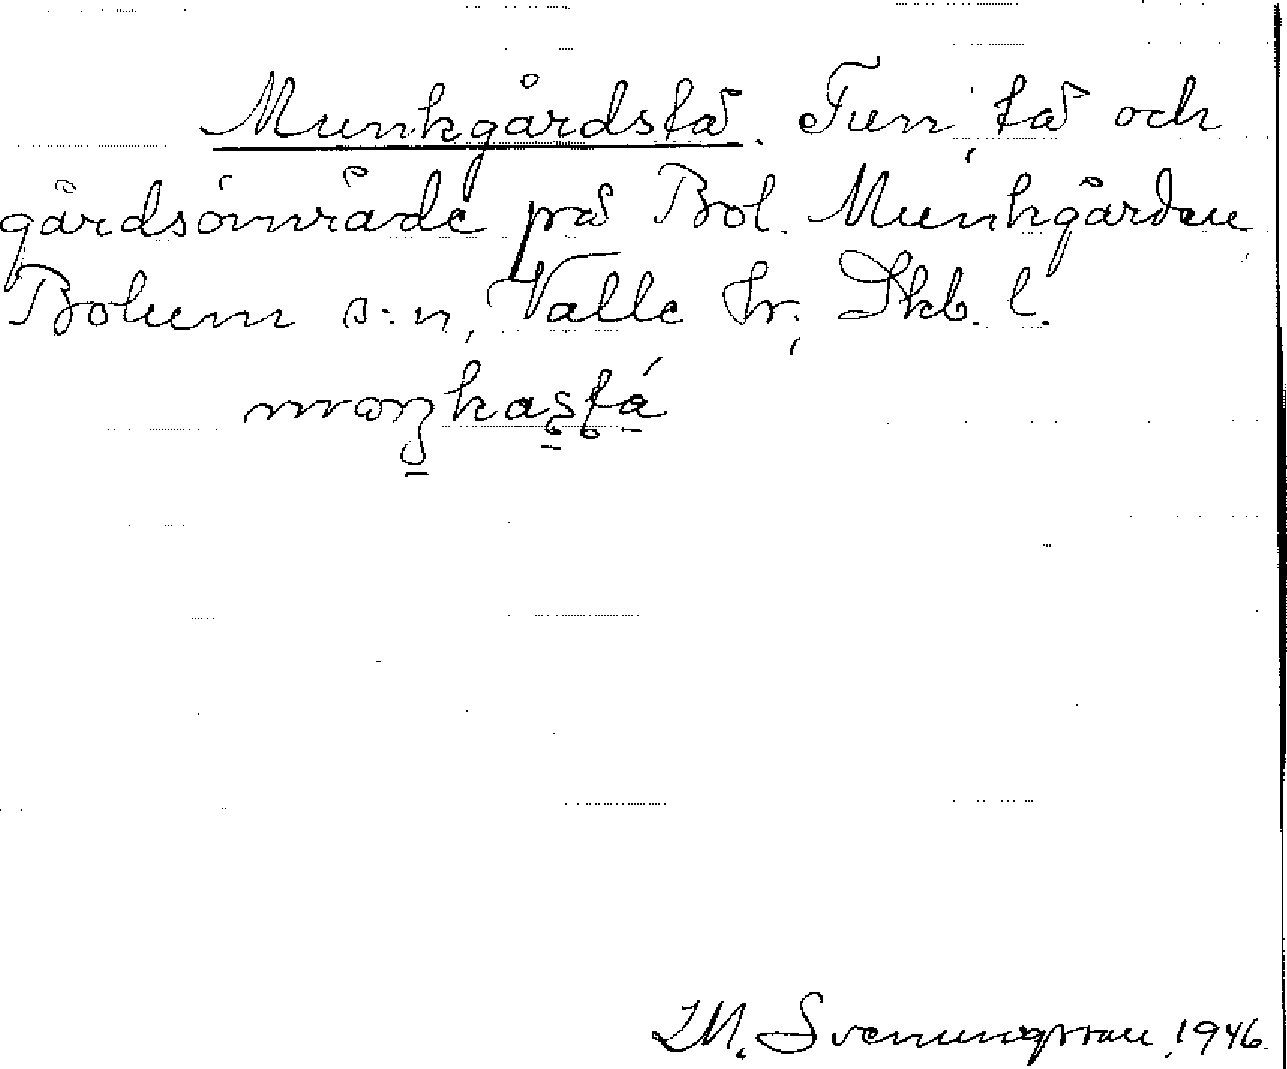 Munkgårdsfå. Tun, få och
gårdsområde på Bol. Munkgården
Bolum s:n, Valle hr., Skb. l.
M. Svenungsson 1946